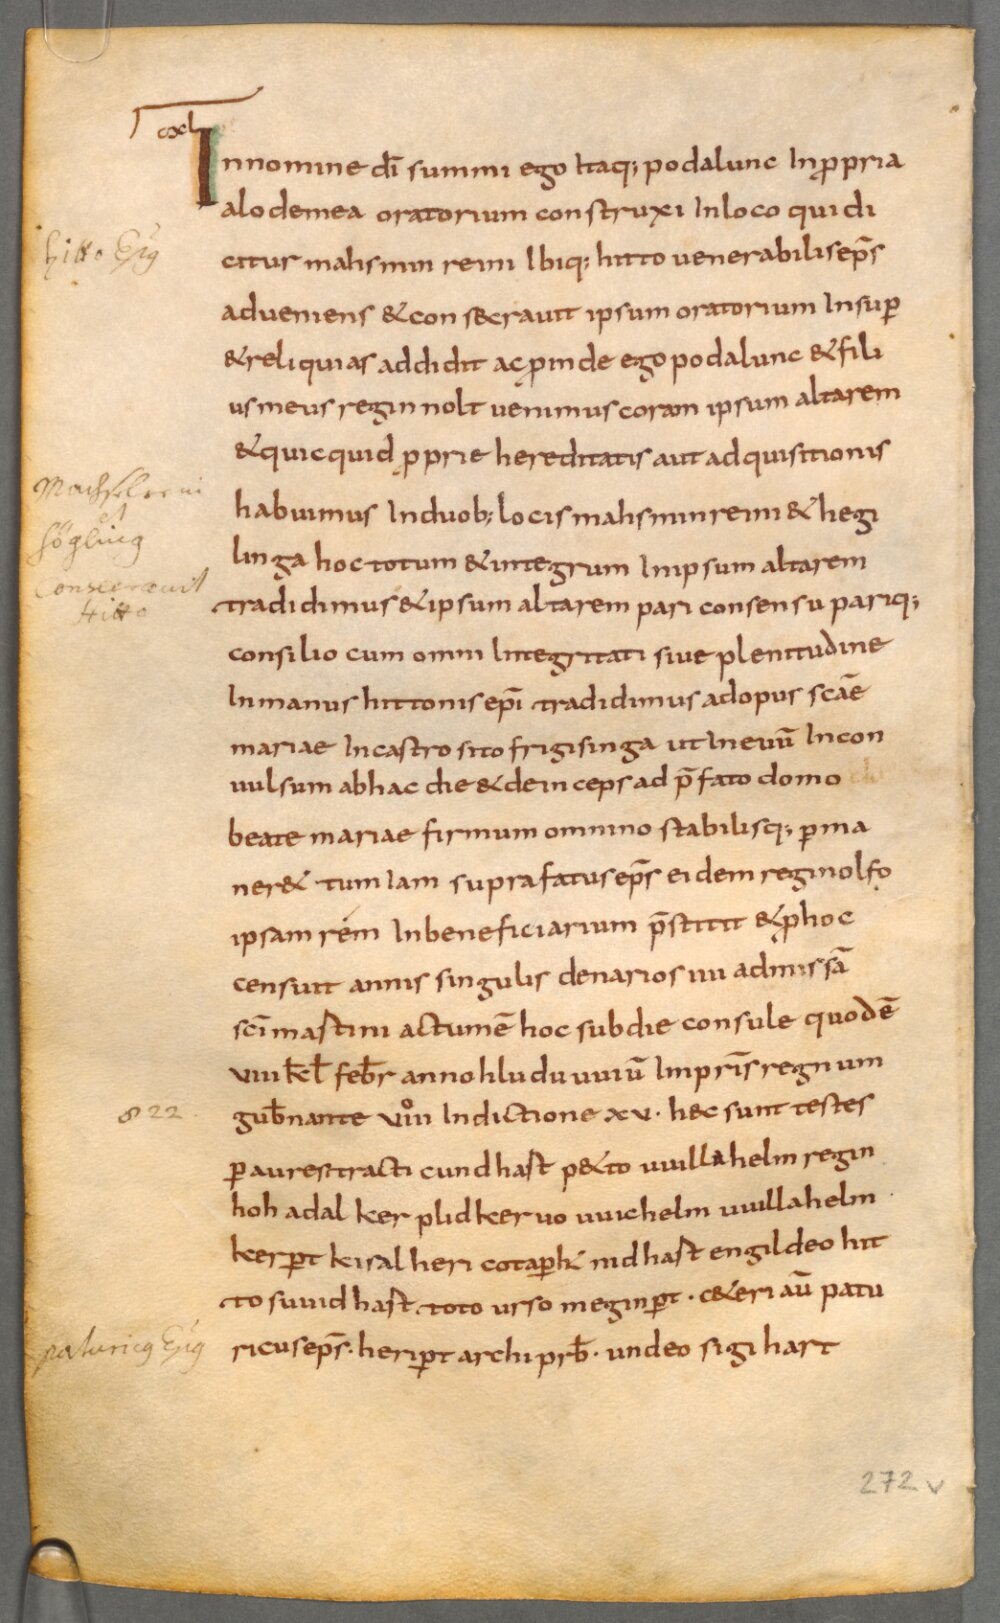 cxl
Innomine dī summi ego Itaq; podalunc Inpropria
alodemea oratorium construxi Inloco qui di
citur mahsmin reini Ibiq; hitto uenerabilis ep̄s
adueniens & consecrauit ipsum oratorium Insup
hitto Ep̄s
& reliquias addidit ac proinde ego podalunc & fili
us meus reginnolt uenimus coram ipsum altarem
& quicquid proprie hereditatis aut adquisitionis
Machsolreini
habuimus Induob; locis mahsminreini & hegi
et
högling
linga hoc totum & integrum Inipsum altarem
Consecrauit
Hitto
tradidimus & ipsum altarem pari consensu pariq;
consilio cum omni Integritati siue plenitudine
Inmanus hittonis ep̄i tradidimus adopus scāe
mariae Incastro sito frigisinga ut Ineuū Incon
uulsum abhac die & deinceps ad p̄fato domo
beate mariae firmum omnino stabilisq; perma
ner& tum Iam suprafatus ep̄s eidem reginolfo
ipsam rem Inbeneficiarium p̄stitit & phoc
censuit annis singulis denarios uii admissā
scī mastini actumē hoc subdie consule quodē
viiii kl̄ feb̄r anno hluduuuiū Imp̄ris regnum
822
gub̄nante viiii Indictione xv· hec sunt testes
p aures tracti cundhast p&to uuillahelm regin
hoh adalker plidker uo uuichelm uuillahelm
kerpt kisalheri cotaperht nidhast engildeo hit
to suuidhast toto urso meginpt · c&eri aū patu
paturicq Ep̄s
ricus ep̄s · heript archi prb̄ · undeo sigihart
272 v